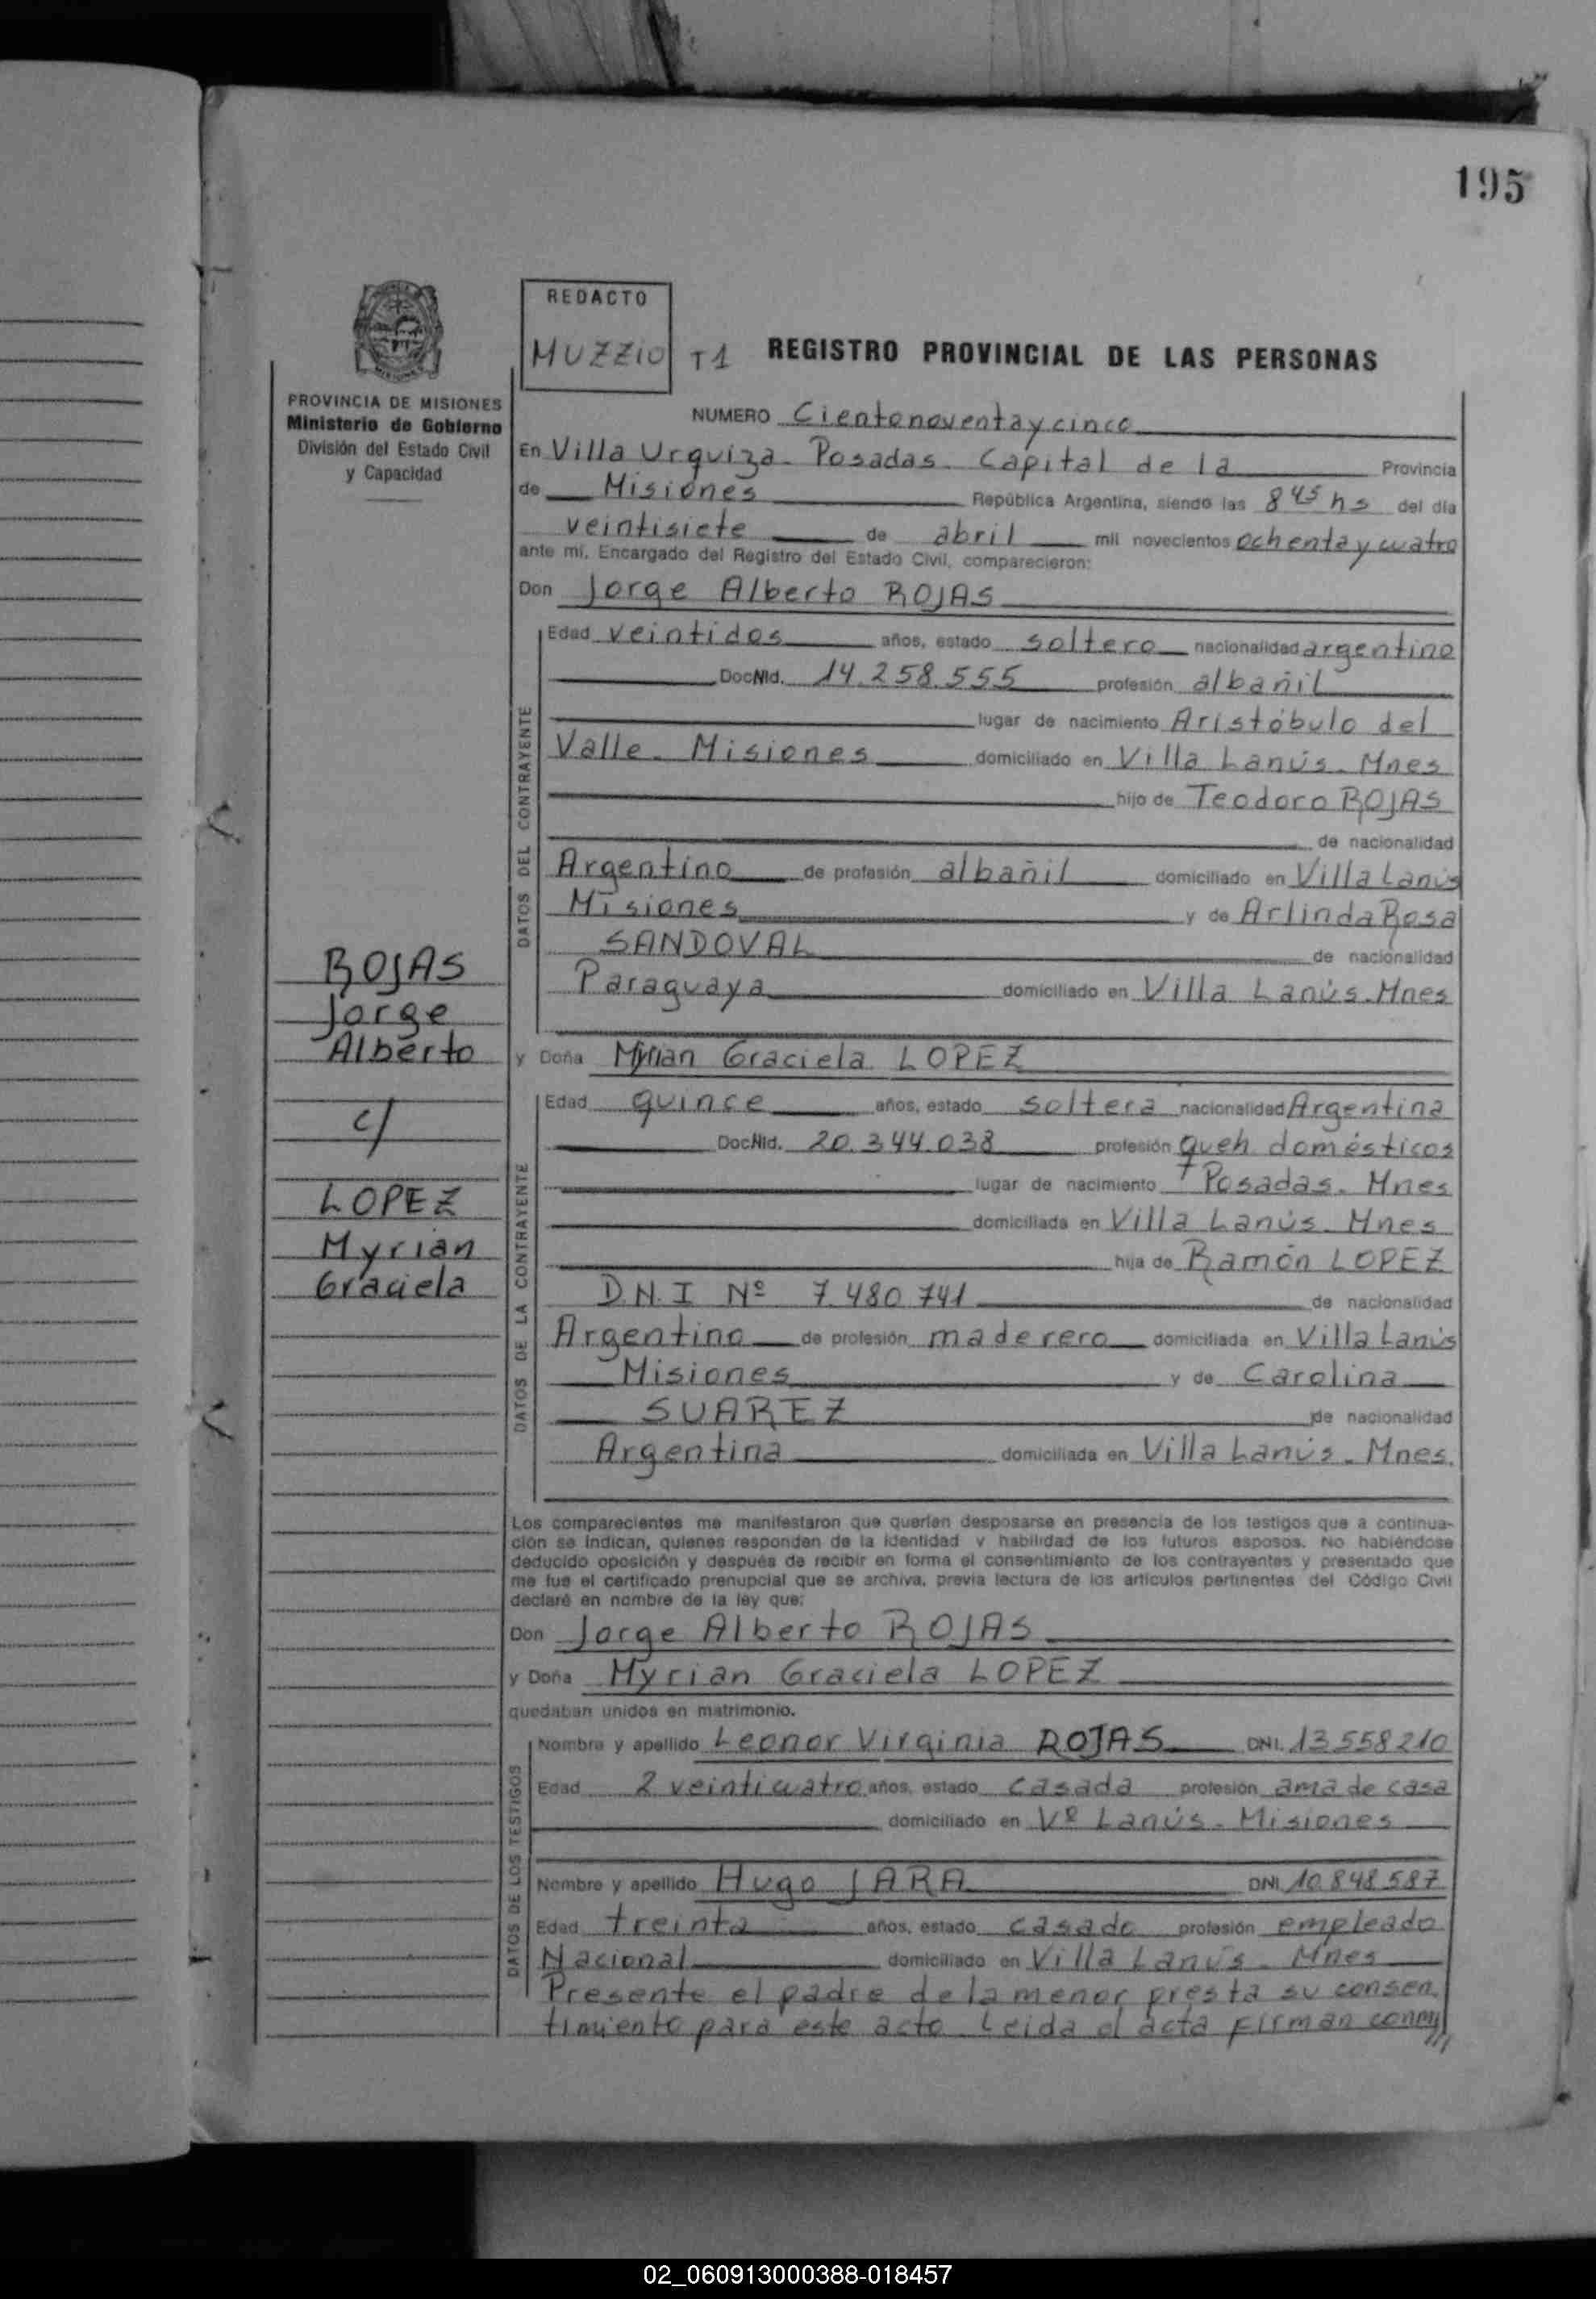 195
REDACTO
MUZZIO T1 REGISTRO PROVINCIAL DE LAS PERSONAS
PROVINCIA DE MISIONES
Ministerio de Gobierno
División del Estado Civil
y Capacidad
NUMERO Cientonoventaycinco
En Villa Urquiza - Posadas - Capital de la Provincia
de Misiones República Argentina, siendo las 8 45 hs del día
veintisiete de abril mil novecientos ochentaycuatro
ante mí, Encargado del Registro del Estado Civil, comparecieron:
Don Jorge Alberto ROJAS
DATOS DEL CONTRAYENTE
Edad veintidos años, estado soltero nacionalidad argentino
Doc.NId. 14.258.555 profesión albañil
lugar de nacimiento Aristóbulo del
Valle - Misiones domiciliado en Villa Lanús - Mnes
hijo de Teodoro ROJAS
de nacionalidad
Argentino de profesión albañil domiciliado en Villa Lanús
Misiones y de Arlinda Rosa
SANDOVAL de nacionalidad
Paraguaya domiciliado en Villa Lanús - Mnes
ROJAS
Jorge
Alberto
c/
LOPEZ
Myrian
Graciela
y Doña Myrian Graciela LOPEZ
DATOS DE LA CONTRAYENTE
Edad quince años, estado soltera nacionalidad Argentina
Doc.NId. 20.344.038 profesión queh domésticos
lugar de nacimiento Posadas - Mnes
domiciliada en Villa Lanús - Mnes
hija de Ramón LOPEZ
D.N.I Nº 7.480.741 de nacionalidad
Argentino de profesión maderero domiciliada en Villa Lanús
Misiones y de Carolina
SUAREZ de nacionalidad
Argentina domiciliada en Villa Lanús - Mnes.
Los comparecientes me manifestaron que querían desposarse en presencia de los testigos que a continua-
ción se indican, quienes responden de la identidad y habilidad de los futuros esposos. No habiéndose
deducido oposición y después de recibir en forma el consentimiento de los contrayentes y presentado que
me fue el certificado prenupcial que se archiva, previa lectura de los artículos pertinentes del Código Civil
declaré en nombre de la ley que:
Don Jorge Alberto ROJAS
y Doña Myrian Graciela LOPEZ
quedaban unidos en matrimonio.
DATOS DE LOS TESTIGOS
Nombre y apellido Leonor Virginia ROJAS DNI. 13558210
Edad 2 veinticuatro años, estado casada profesión ama de casa
domiciliado en Vª Lanús - Misiones
Nombre y apellido Hugo JARA DNI. 10.848.587
Edad treinta años, estado casado profesión empleado
Nacional domiciliado en Villa Lanús - Mnes
Presente el padre de la menor presta su consen
timiento para este acto. Leida el acta firman conmi///
02_060913000388-018457